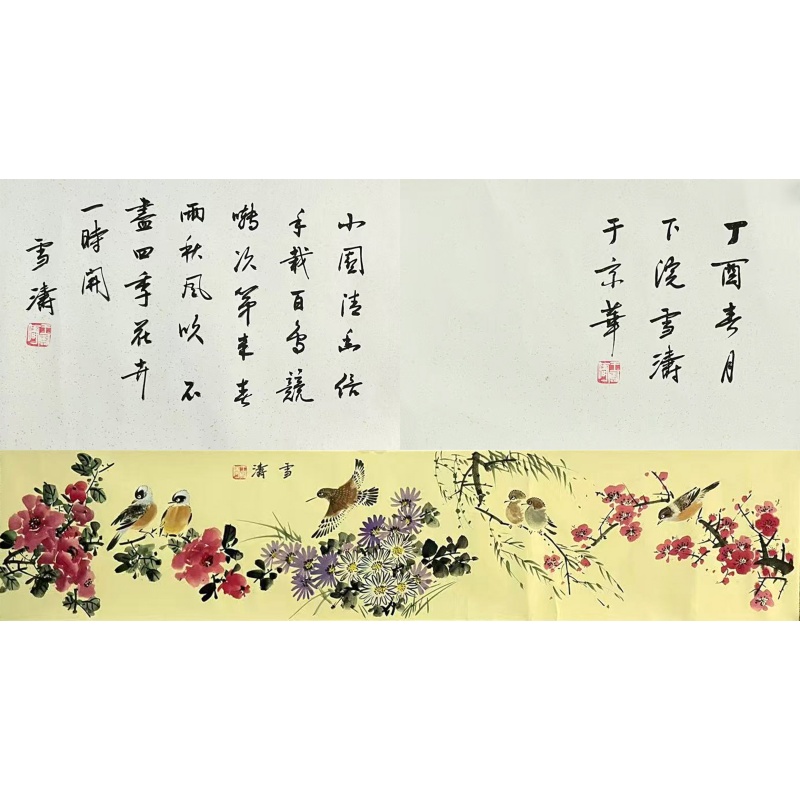 小園清幽倍
手栽百鳥競
囀次第來春
雨秋風吹不
盡四季花卉
一時開
雪濤
丁酉春月
下浣雪濤
于京華
雪
濤